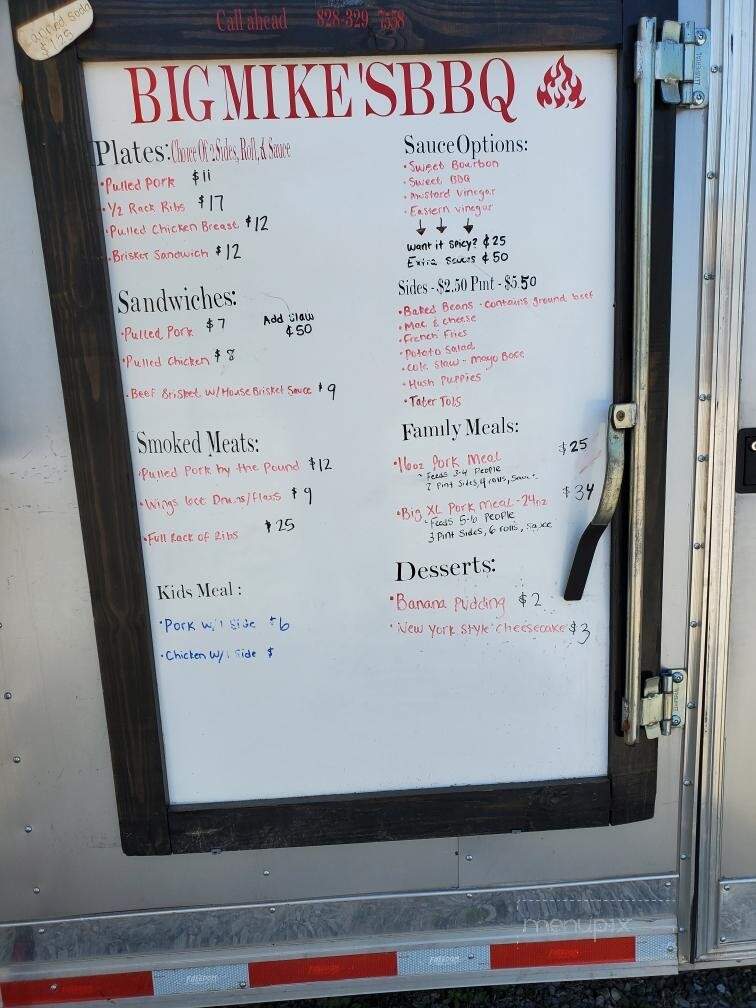 canned soda
$1.25
Call ahead 828-329-7558
BIG MIKE'S BBQ
Plates: Choice Of 2 Sides, Roll, & Sauce
• Pulled Pork $11
• 1/2 Rack Ribs $17
• Pulled Chicken Breast $12
• Brisket Sandwich $12
Sandwiches:
• Pulled Pork $7
Add Slaw
¢50
• Pulled Chicken $8
• Beef Brisket w/ House Brisket Sauce $9
Smoked Meats:
• Pulled Pork by the Pound $12
• Wings 6ct Drums/flats $9
• Full Rack of Ribs $25
Kids Meal:
• Pork w/1 Side $6
• Chicken w/1 Side $
Sauce Options:
• Sweet Bourbon
• Sweet BBQ
• Mustard Vinegar
• Eastern Vinegar
↓ ↓ ↓
want it Spicy? ¢25
Extra Sauces ¢50
Sides - $2.50 Pint - $5.50
• Baked Beans - contains ground beef
• Mac & cheese
• French Fries
• Potato Salad
• Cole Slaw - Mayo Base
• Hush Puppies
• Tater Tots
Family Meals:
• 16oz Pork Meal $25
• Feeds 3-4 People
2 Pint Sides, 4 rolls, Sauce
• Big XL Pork Meal - 24oz $34
• Feeds 5-6 People
3 Pint Sides, 6 rolls, Sauce
Desserts:
• Banana Pudding $2
• New York Style Cheesecake $3
menupix